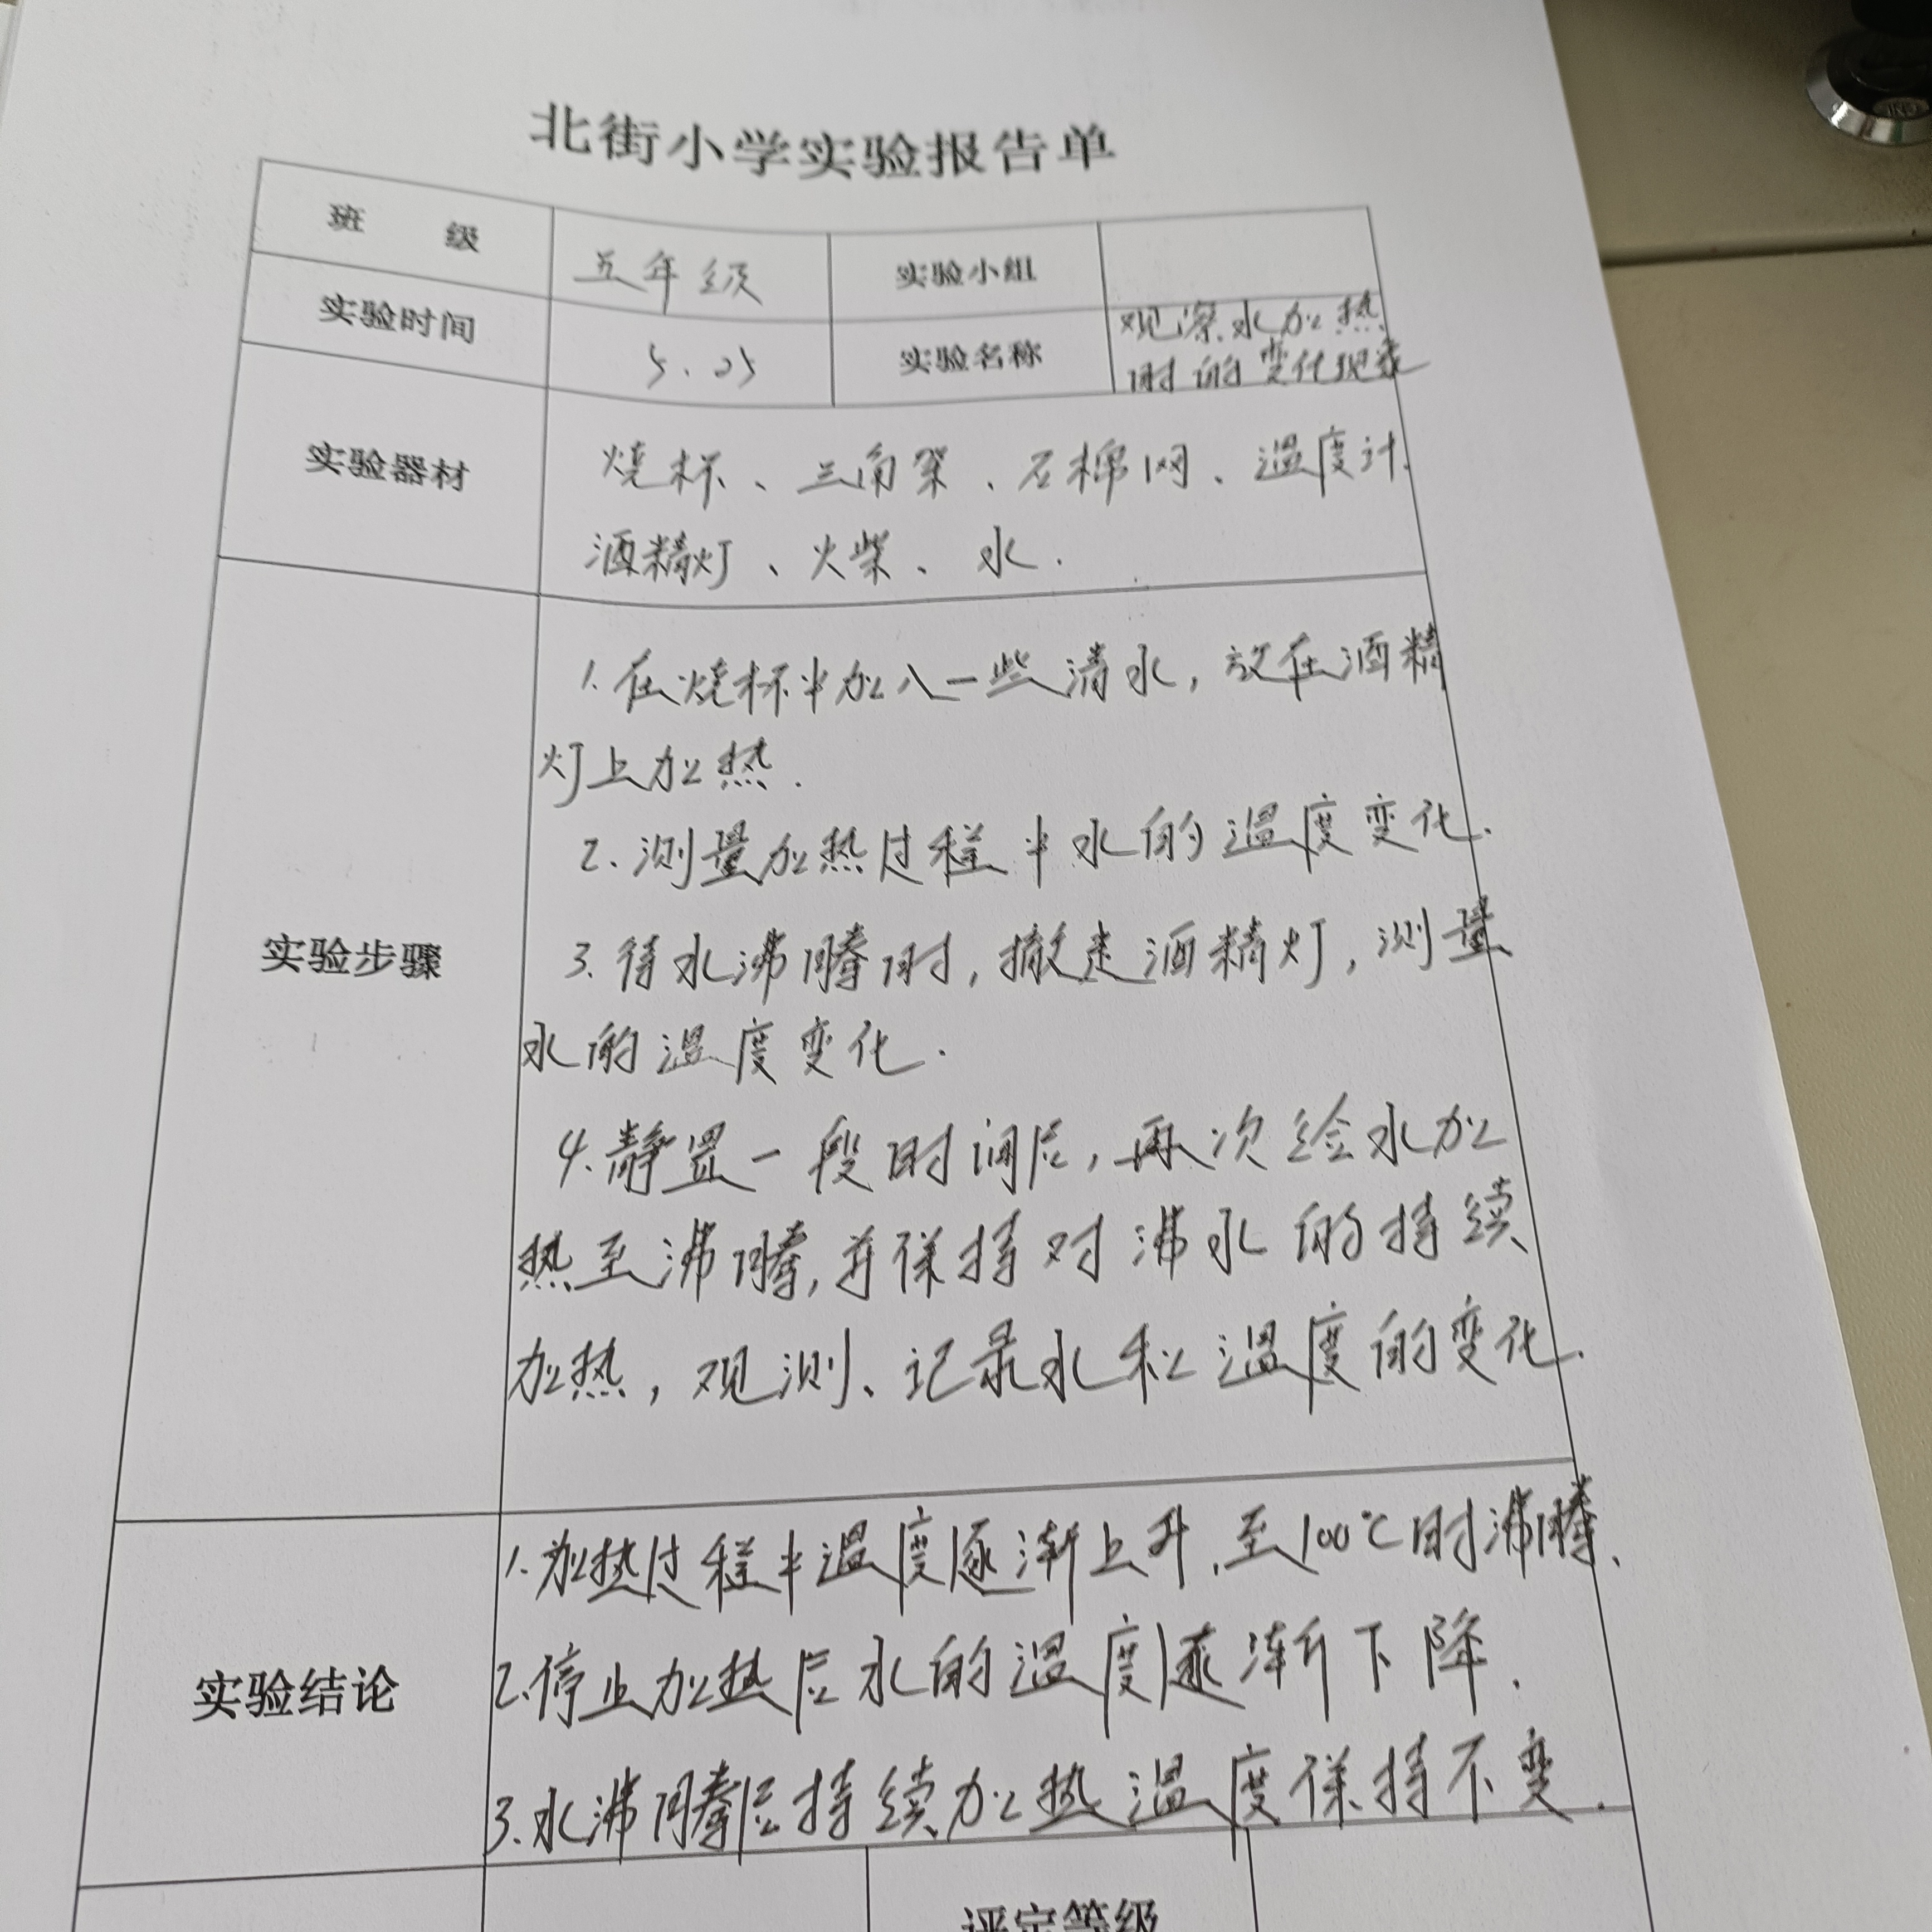 北街小学实验报告单
班 级 五年级 实验小组
实验时间 5.25 实验名称 观察水加热
时的变化现象
实验器材 烧杯、三角架、石棉网、温度计、
酒精灯、火柴、水.
1.在烧杯中加入一些清水,放在酒精
灯上加热.
2.测量加热过程中水的温度变化.
实验步骤 3.待水沸腾时,撤走酒精灯,测量
水的温度变化.
4.静置一段时间后,再次给水加
热至沸腾,并保持对沸水的持续
加热,观测、记录水和温度的变化.
1.加热过程中温度逐渐上升,至100℃时沸腾、
实验结论 2.停止加热后水的温度逐渐下降.
3.水沸腾后持续加热温度保持不变.
评定等级